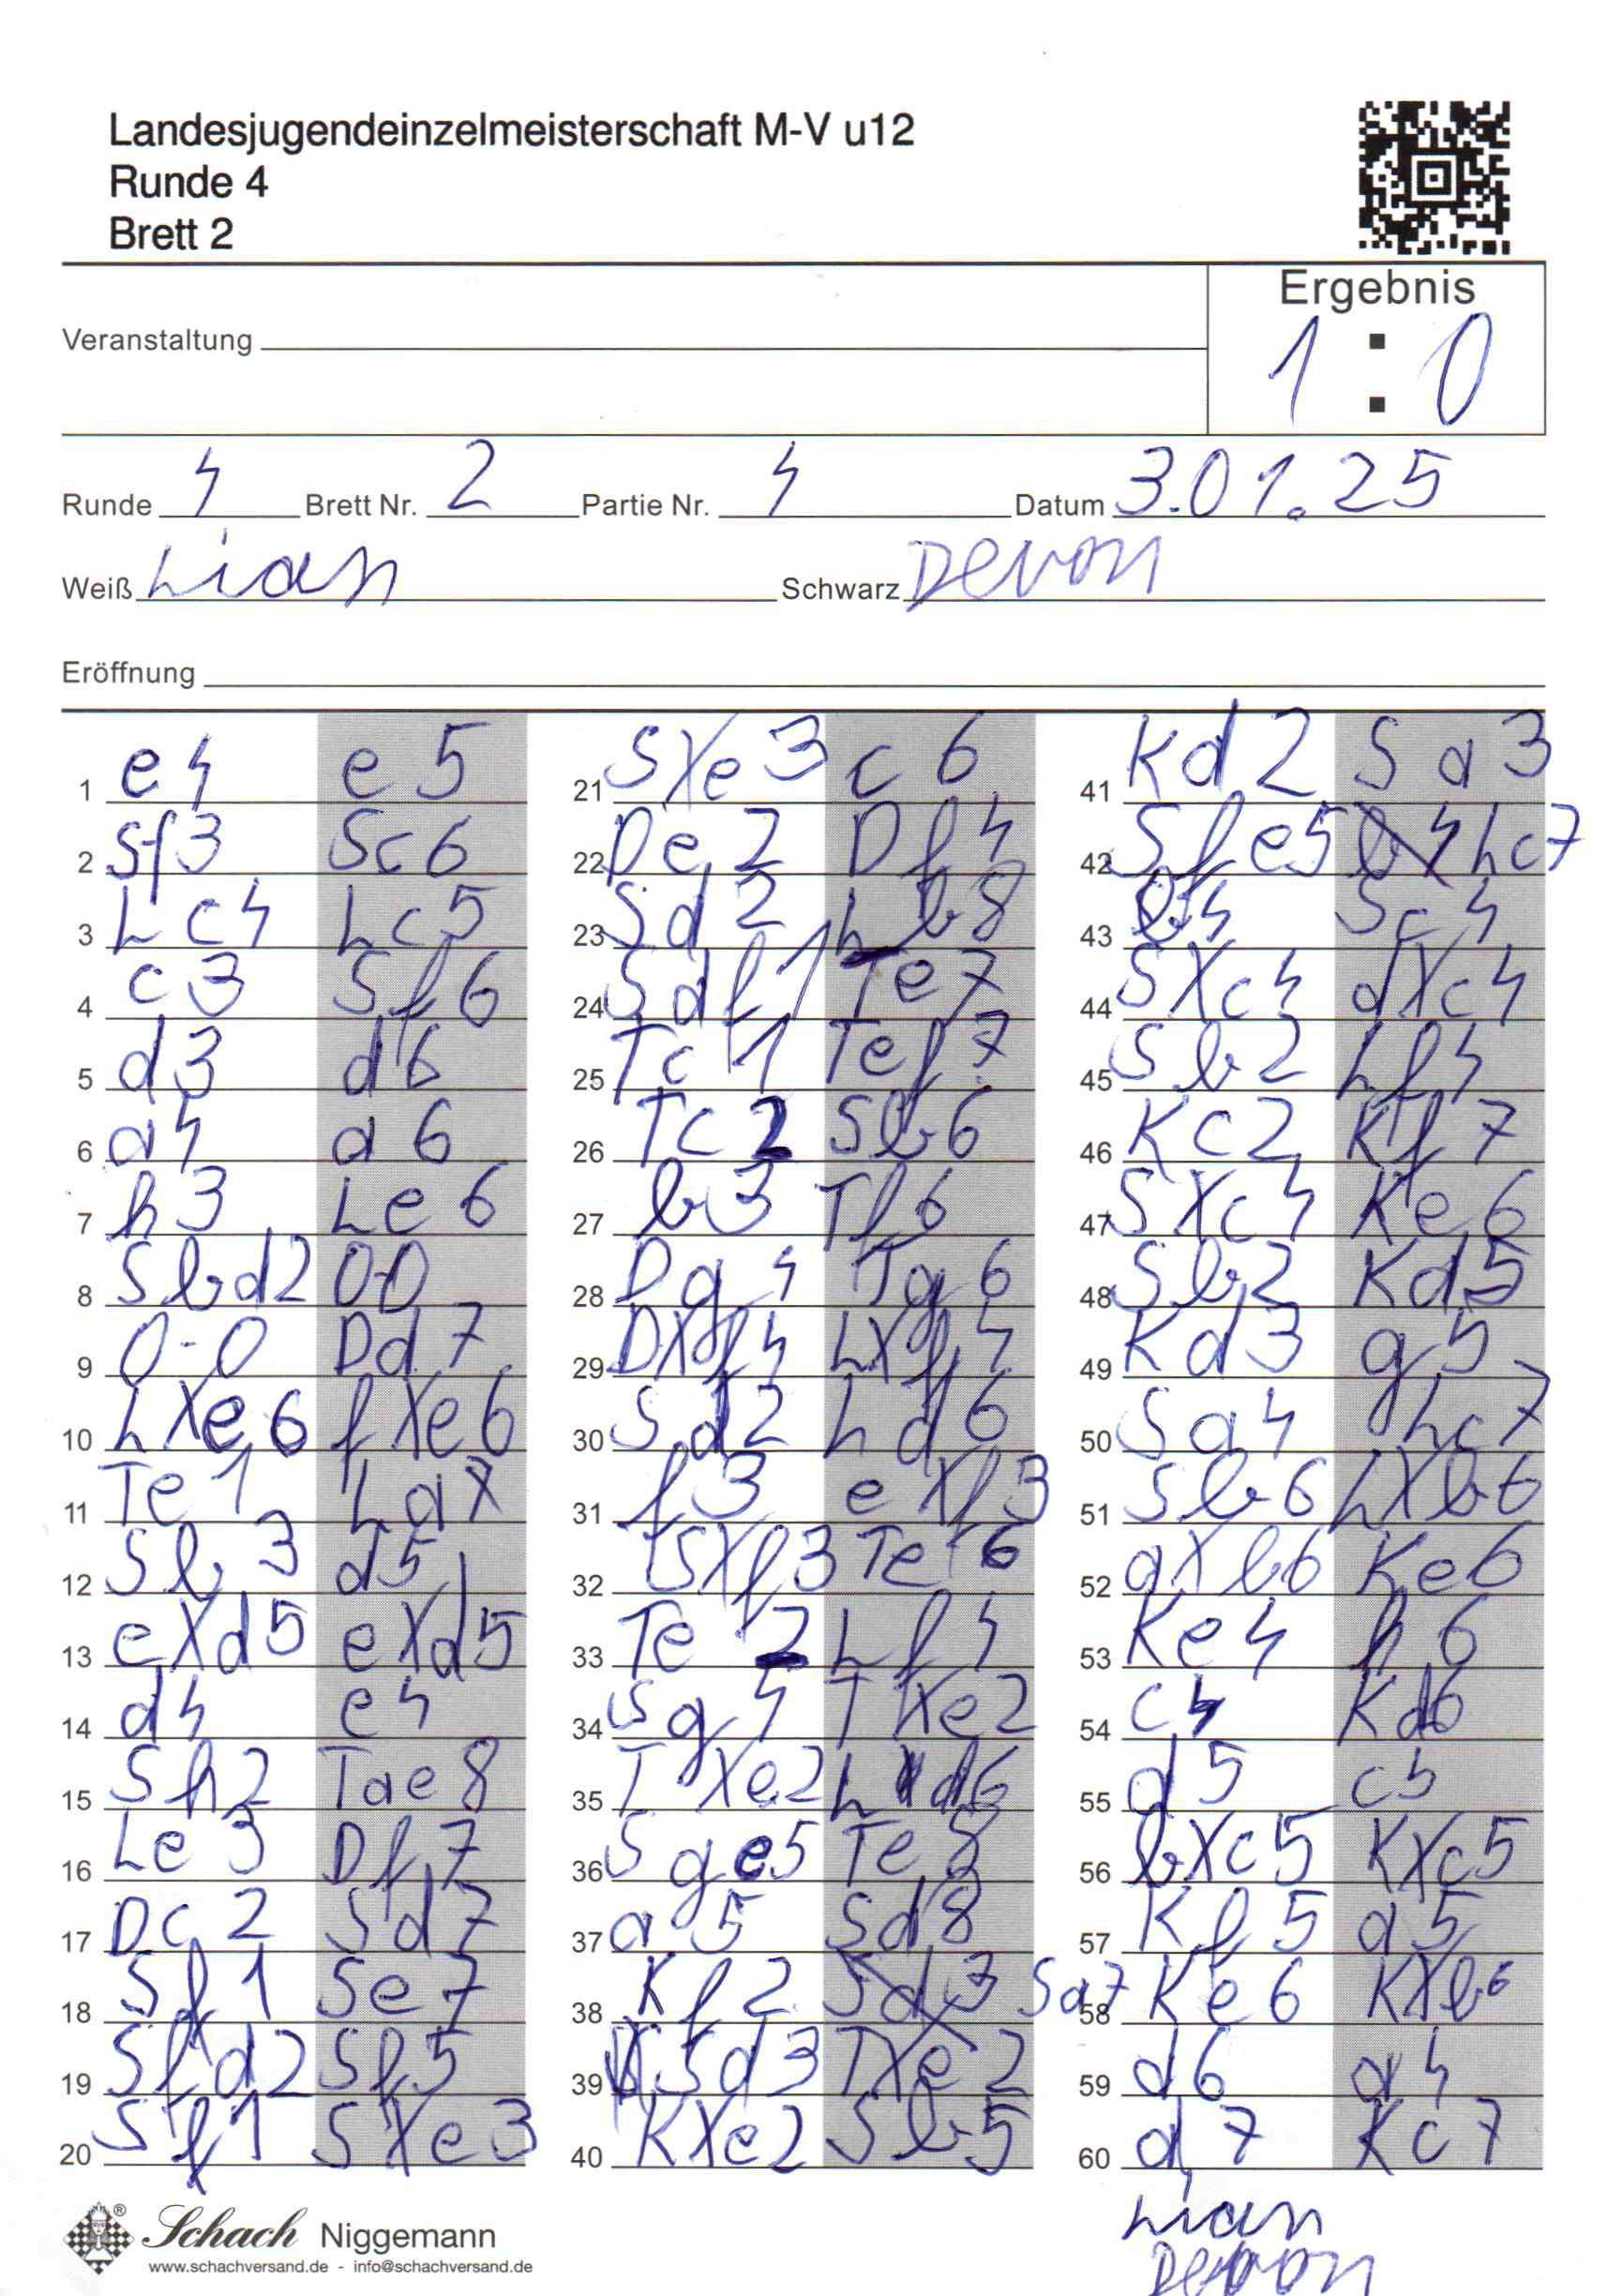 Landesjugendeinzelmeisterschaft M-V u12
Runde 4
Brett 2
Ergebnis
Veranstaltung
1 : 0
Runde 4 Brett Nr. 2 Partie Nr. 4 Datum 3.01.25
Weiß Lian Schwarz Devon
Eröffnung
1 e4 e5
2 Sf3 Sc6
3 Lc4 Lc5
4 c3 Sf6
5 d3 d6
6 a4 a6
7 h3 Le6
8 Sbd2 0-0
9 0-0 Dd7
10 LXe6 fXe6
11 Te1 La7
12 Sb3 d5
13 eXd5 eXd5
14 d4 e4
15 Sh2 Tae8
16 Le3 Df7
17 Dc2 Sd7
18 Sf1 Se7
19 Sfd2 Sf5
20 Sf1 SXe3
21 SXe3 c6
22 De2 Df4
23 Sd2 Lb8
24 Sdf1 Te7
25 Tc1 Tef7
26 Tc2 Sb6
27 b3 Tf6
28 Dg4 Tg6
29 DXf4 LXf4
30 Sd2 Ld6
31 f3 eXf3
32 SXf3 Te6
33 Te2 Lf4
34 Sg4 TXe2
35 TXe2 Ld6
36 Sge5 Te8
37 a5 Sd8
38 Kf2 Sa7
39 Sd3 TXe2
40 KXe2 Sb5
41 Kd2 Sa3
42 Sfe5 Lc7
43 b4 Sc4
44 SXc4 dXc4
45 Sb2 Lf4
46 Kc2 Kf7
47 SXc4 Ke6
48 Sb2 Kd5
49 Kd3 g5
50 Sa4 Lc7
51 Sb6 LXb6
52 aXb6 Ke6
53 Ke4 h6
54 c4 Kd6
55 d5 c5
56 bXc5 KXc5
57 Kf5 a5
58 Ke6 KXb6
59 d6 a4
60 d7 Kc7
Lian
Devon
Schach Niggemann
www.schachversand.de - info@schachversand.de